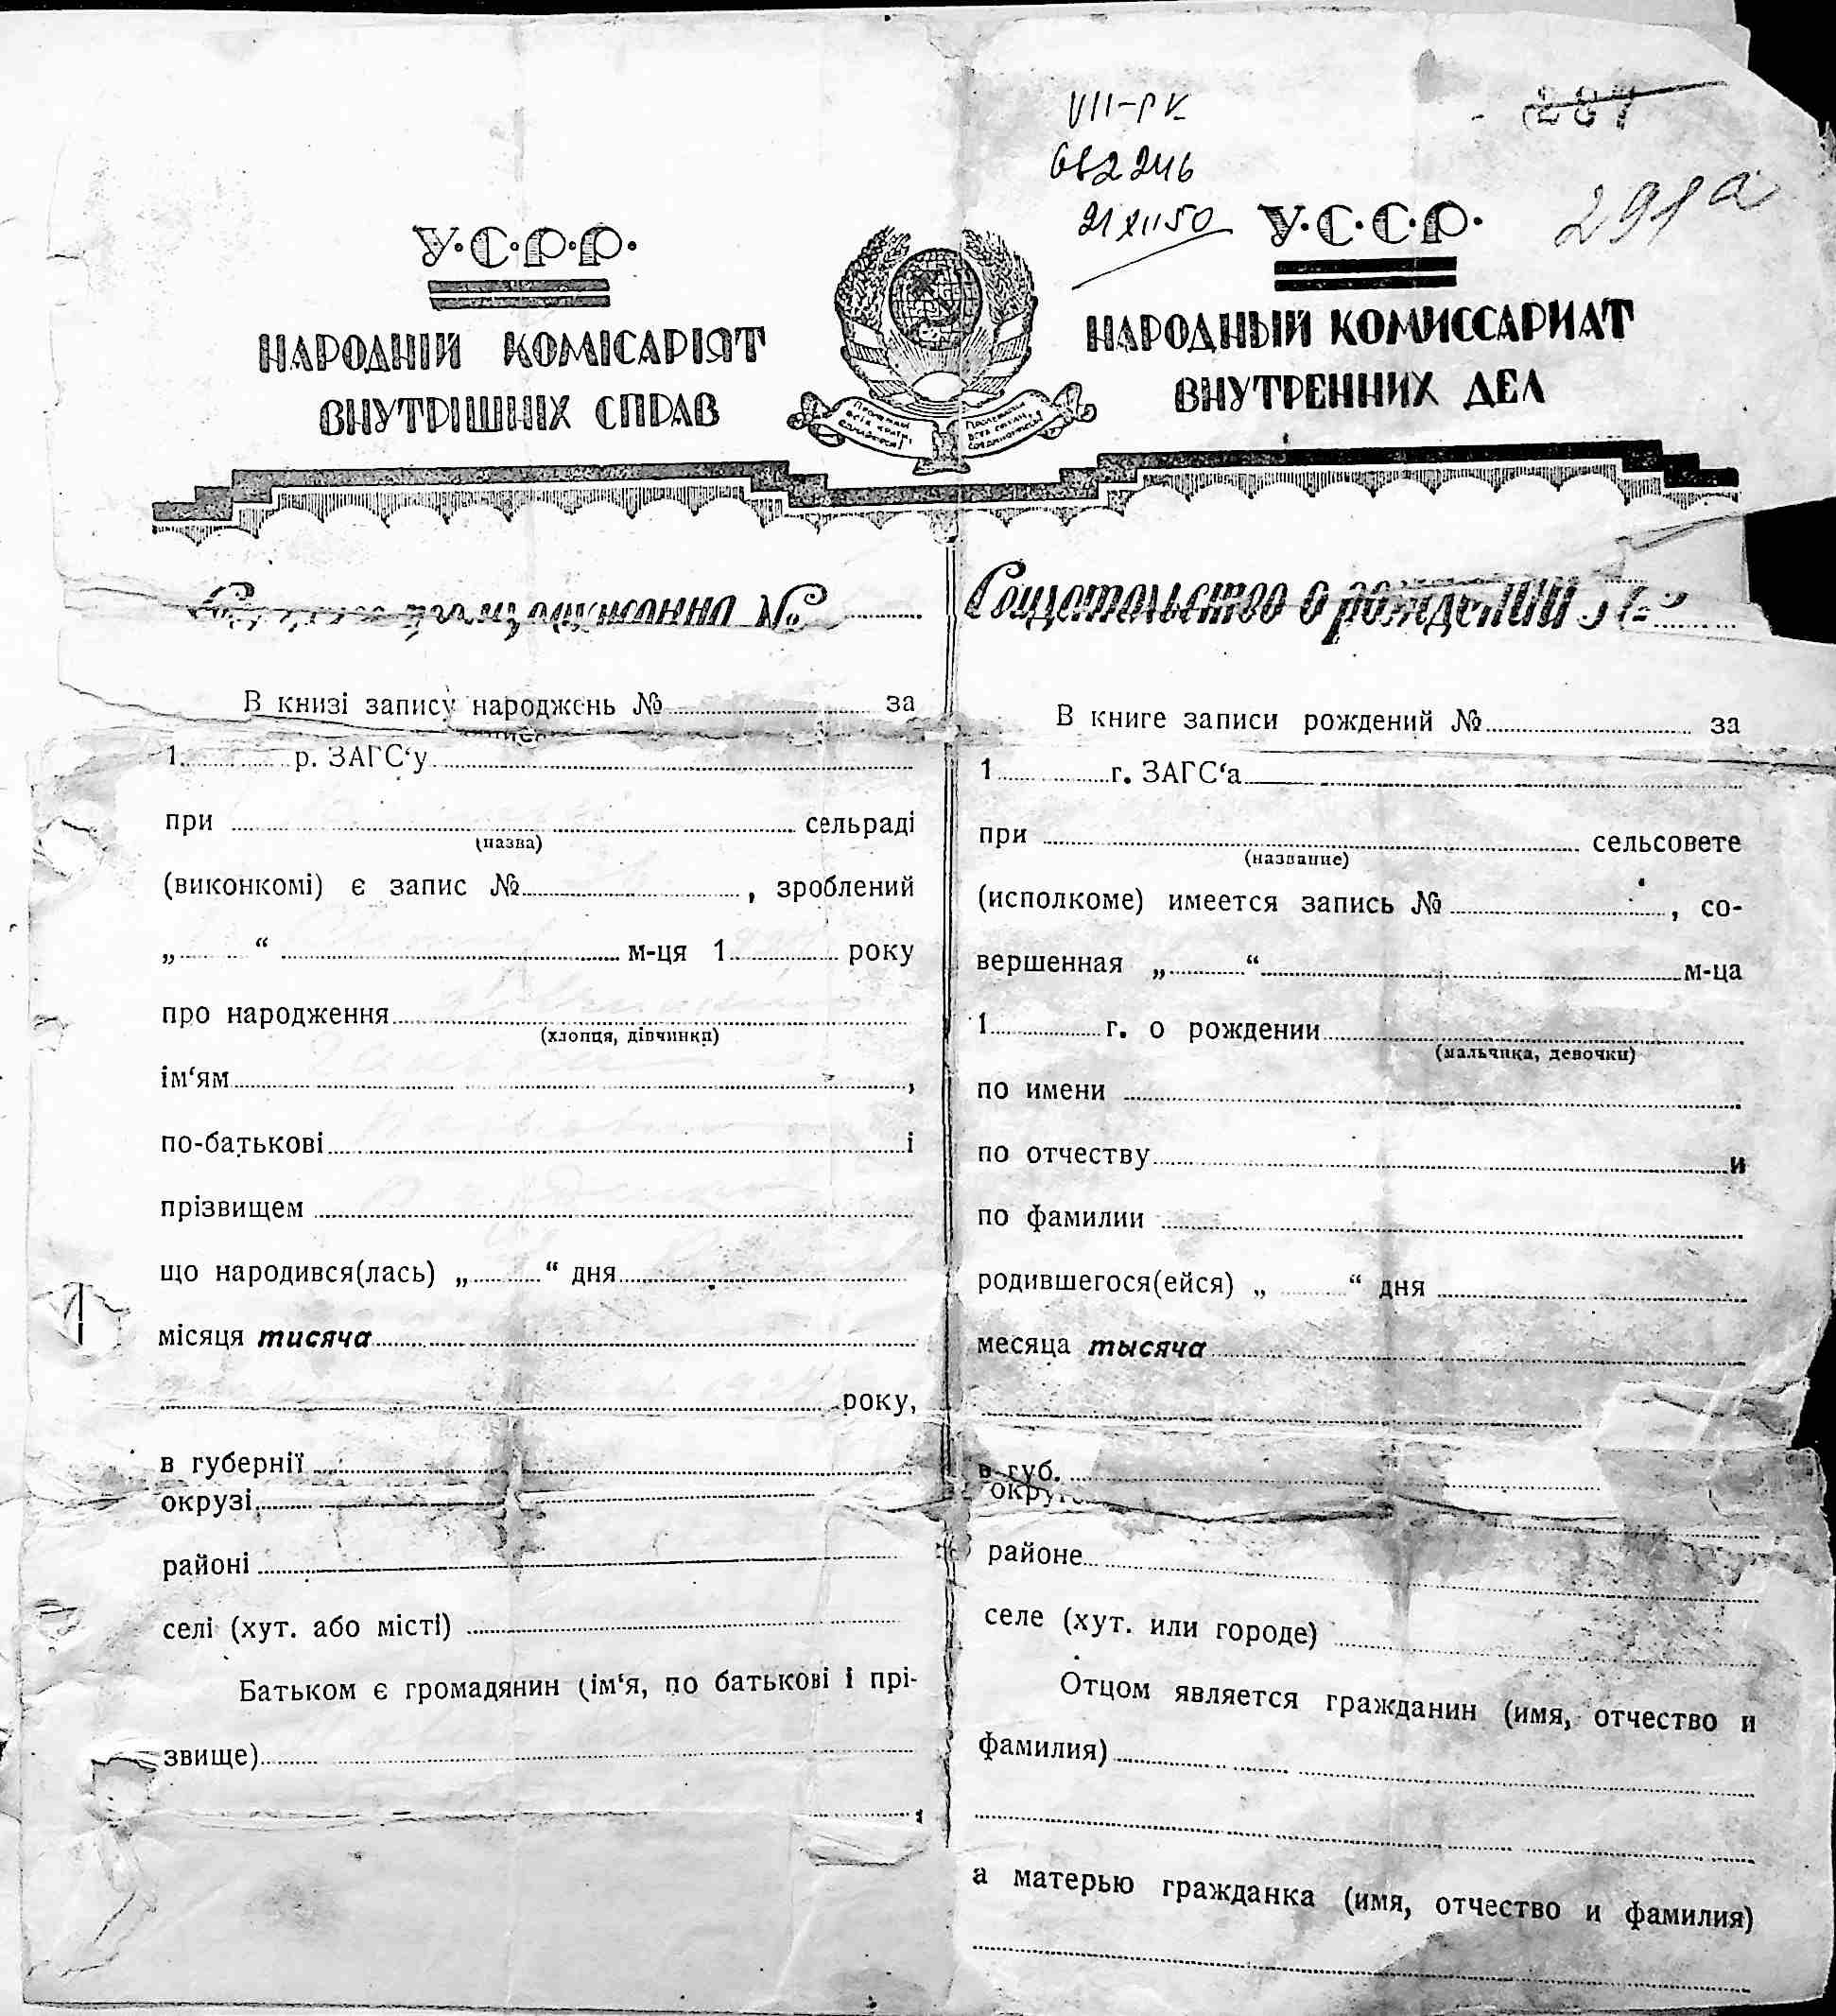 VII-РК
682246
21 XII 50
287
291а
У·С·Р·Р·
НАРОДНІЙ КОМІСАРІЯТ
ВНУТРІШНІХ СПРАВ
В книзі запису народжень № за
1 р. ЗАГС‘у
при сельраді
(назва)
(виконкомі) є запис № , зроблений
„ “ м-ця 1 року
про народження
(хлопця, дівчинки)
ім‘ям ,
по-батькові і
прізвищем
що народився(лась) „ “ дня
місяця тисяча
року,
в губернії
окрузі
районі
селі (хут. або місті)
Батьком є громадянин (ім‘я, по батькові і прі-
звище)
У·С·С·Р·
НАРОДНЫЙ КОМИССАРИАТ
ВНУТРЕННИХ ДЕЛ
Свидетельство о рождении №
В книге записи рождений № за
1 г. ЗАГС‘а
при сельсовете
(название)
(исполкоме) имеется запись № , со-
вершенная „ “ м-ца
1 г. о рождении
(мальчика, девочки)
по имени
по отчеству и
по фамилии
родившегося(ейся) „ “ дня
месяца тысяча
в губ.
округе
районе
селе (хут. или городе)
Отцом является гражданин (имя, отчество и
фамилия)
а матерью гражданка (имя, отчество и фамилия)